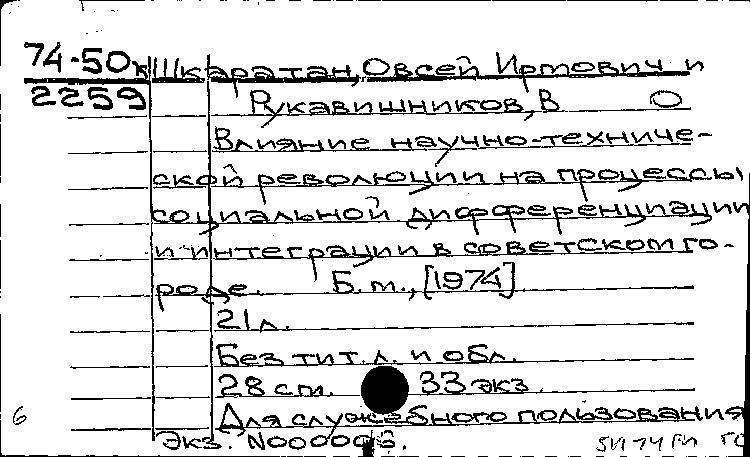 74-50к Шкаратан, Овсей Иртович и
2259 Рукавишников, В О
Влияние научно-техниче-
ской революции на процессы
социальной дифференциации
и интеграции в советском го-
роде. Б.м., [1974]
21 л.
Без тит. л. и обл.
28 см. 33 экз.
Для служебного пользования
6 Экз. N000003.